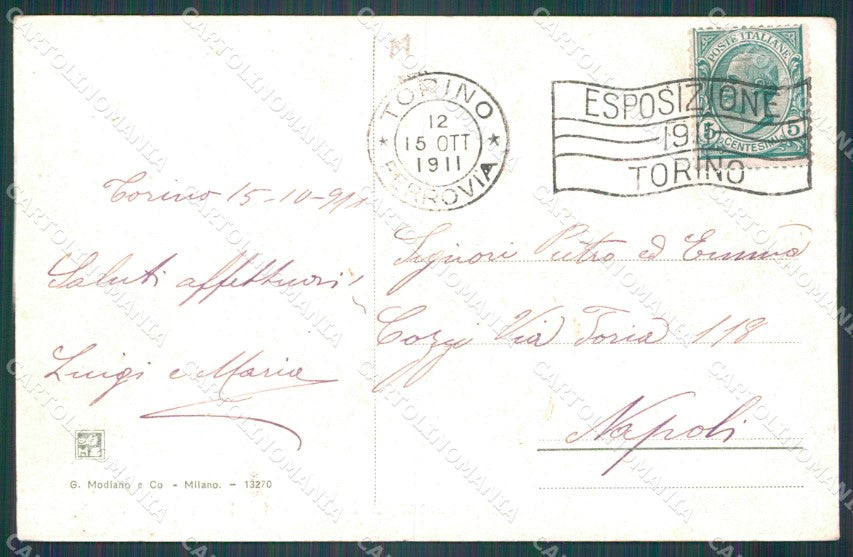 TORINO
12
15 OTT
1911
FERROVIA
ESPOSIZIONE
1911
TORINO
POSTE ITALIANE
5 CENTESIMI 5
Torino 15-10-911
Saluti affettuosi
Luigi e Maria
Signori Pietro ed Emma
Cozzi Via Foria 118
Napoli
G. Modiano e Co - Milano. - 13270
CARTOLINOMANIA